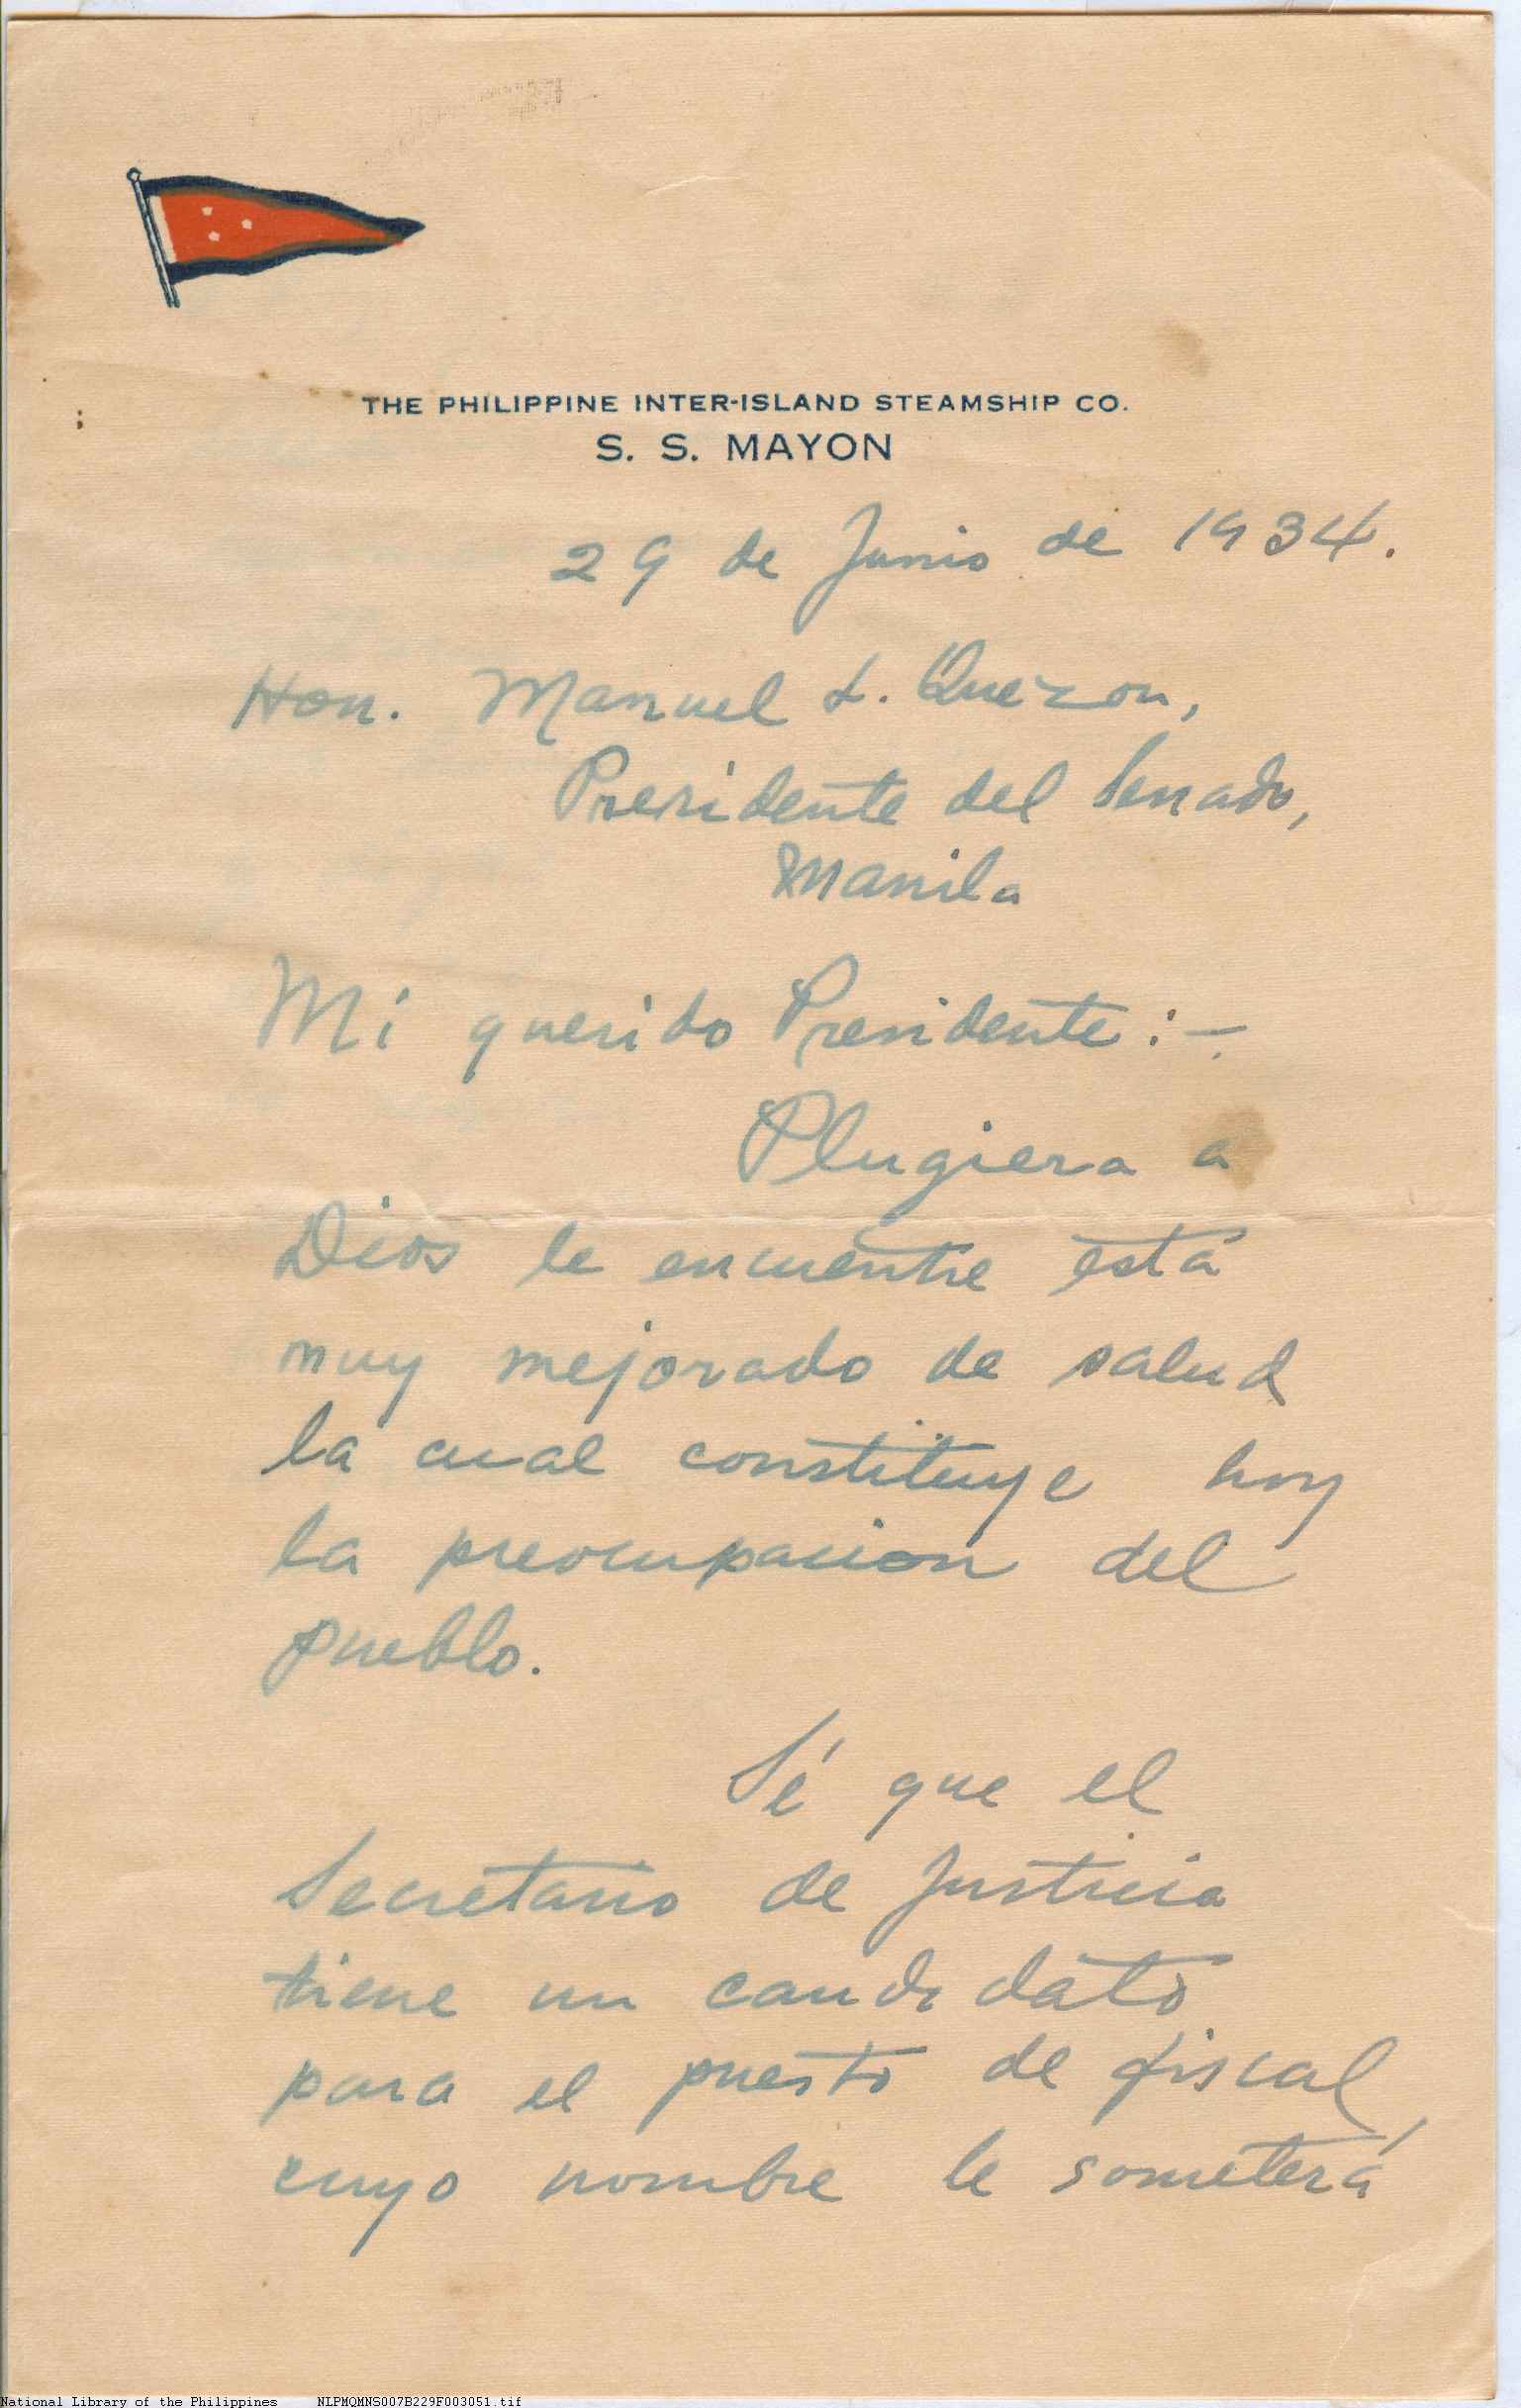 THE PHILIPPINE INTER-ISLAND STEAMSHIP CO.
S. S. MAYON
29 de Junio de 1934.
Hon. Manuel L. Quezon,
Presidente del Senado,
Manila
Mi querido Presidente:-
Plugiera a
Dios le encuentre esta
muy mejorado de salud
la cual constituye hoy
la preocupacion del
pueblo.
Sé que el
Secretario de Justicia
tiene un candidato
para el puesto de fiscal,
cuyo nombre le someterá
National Library of the Philippines NLPMQMNS007B229F003051.tif